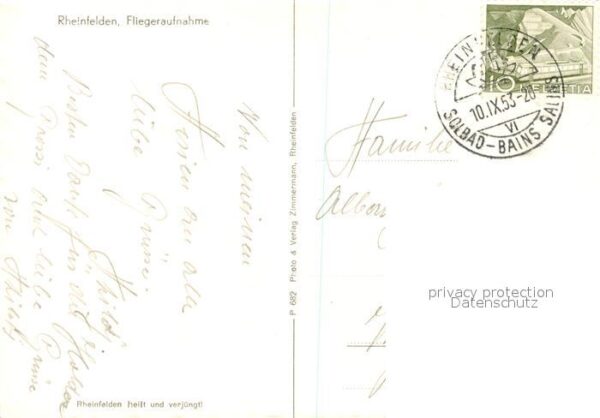 Rheinfelden, Fliegeraufnahme
Von meinen
Ferien an alle
liebe Grüsse.
Besten Dank für
dem Grossi auch liebe Grüsse
von
Rheinfelden heilt und verjüngt!
P 682 Photo & Verlag Zimmermann, Rheinfelden
10 HELVETIA
RHEINFELDEN
10.IX.53-20
VI
SOLBAD-BAINS SALINS
Familie
privacy protection
Datenschutz